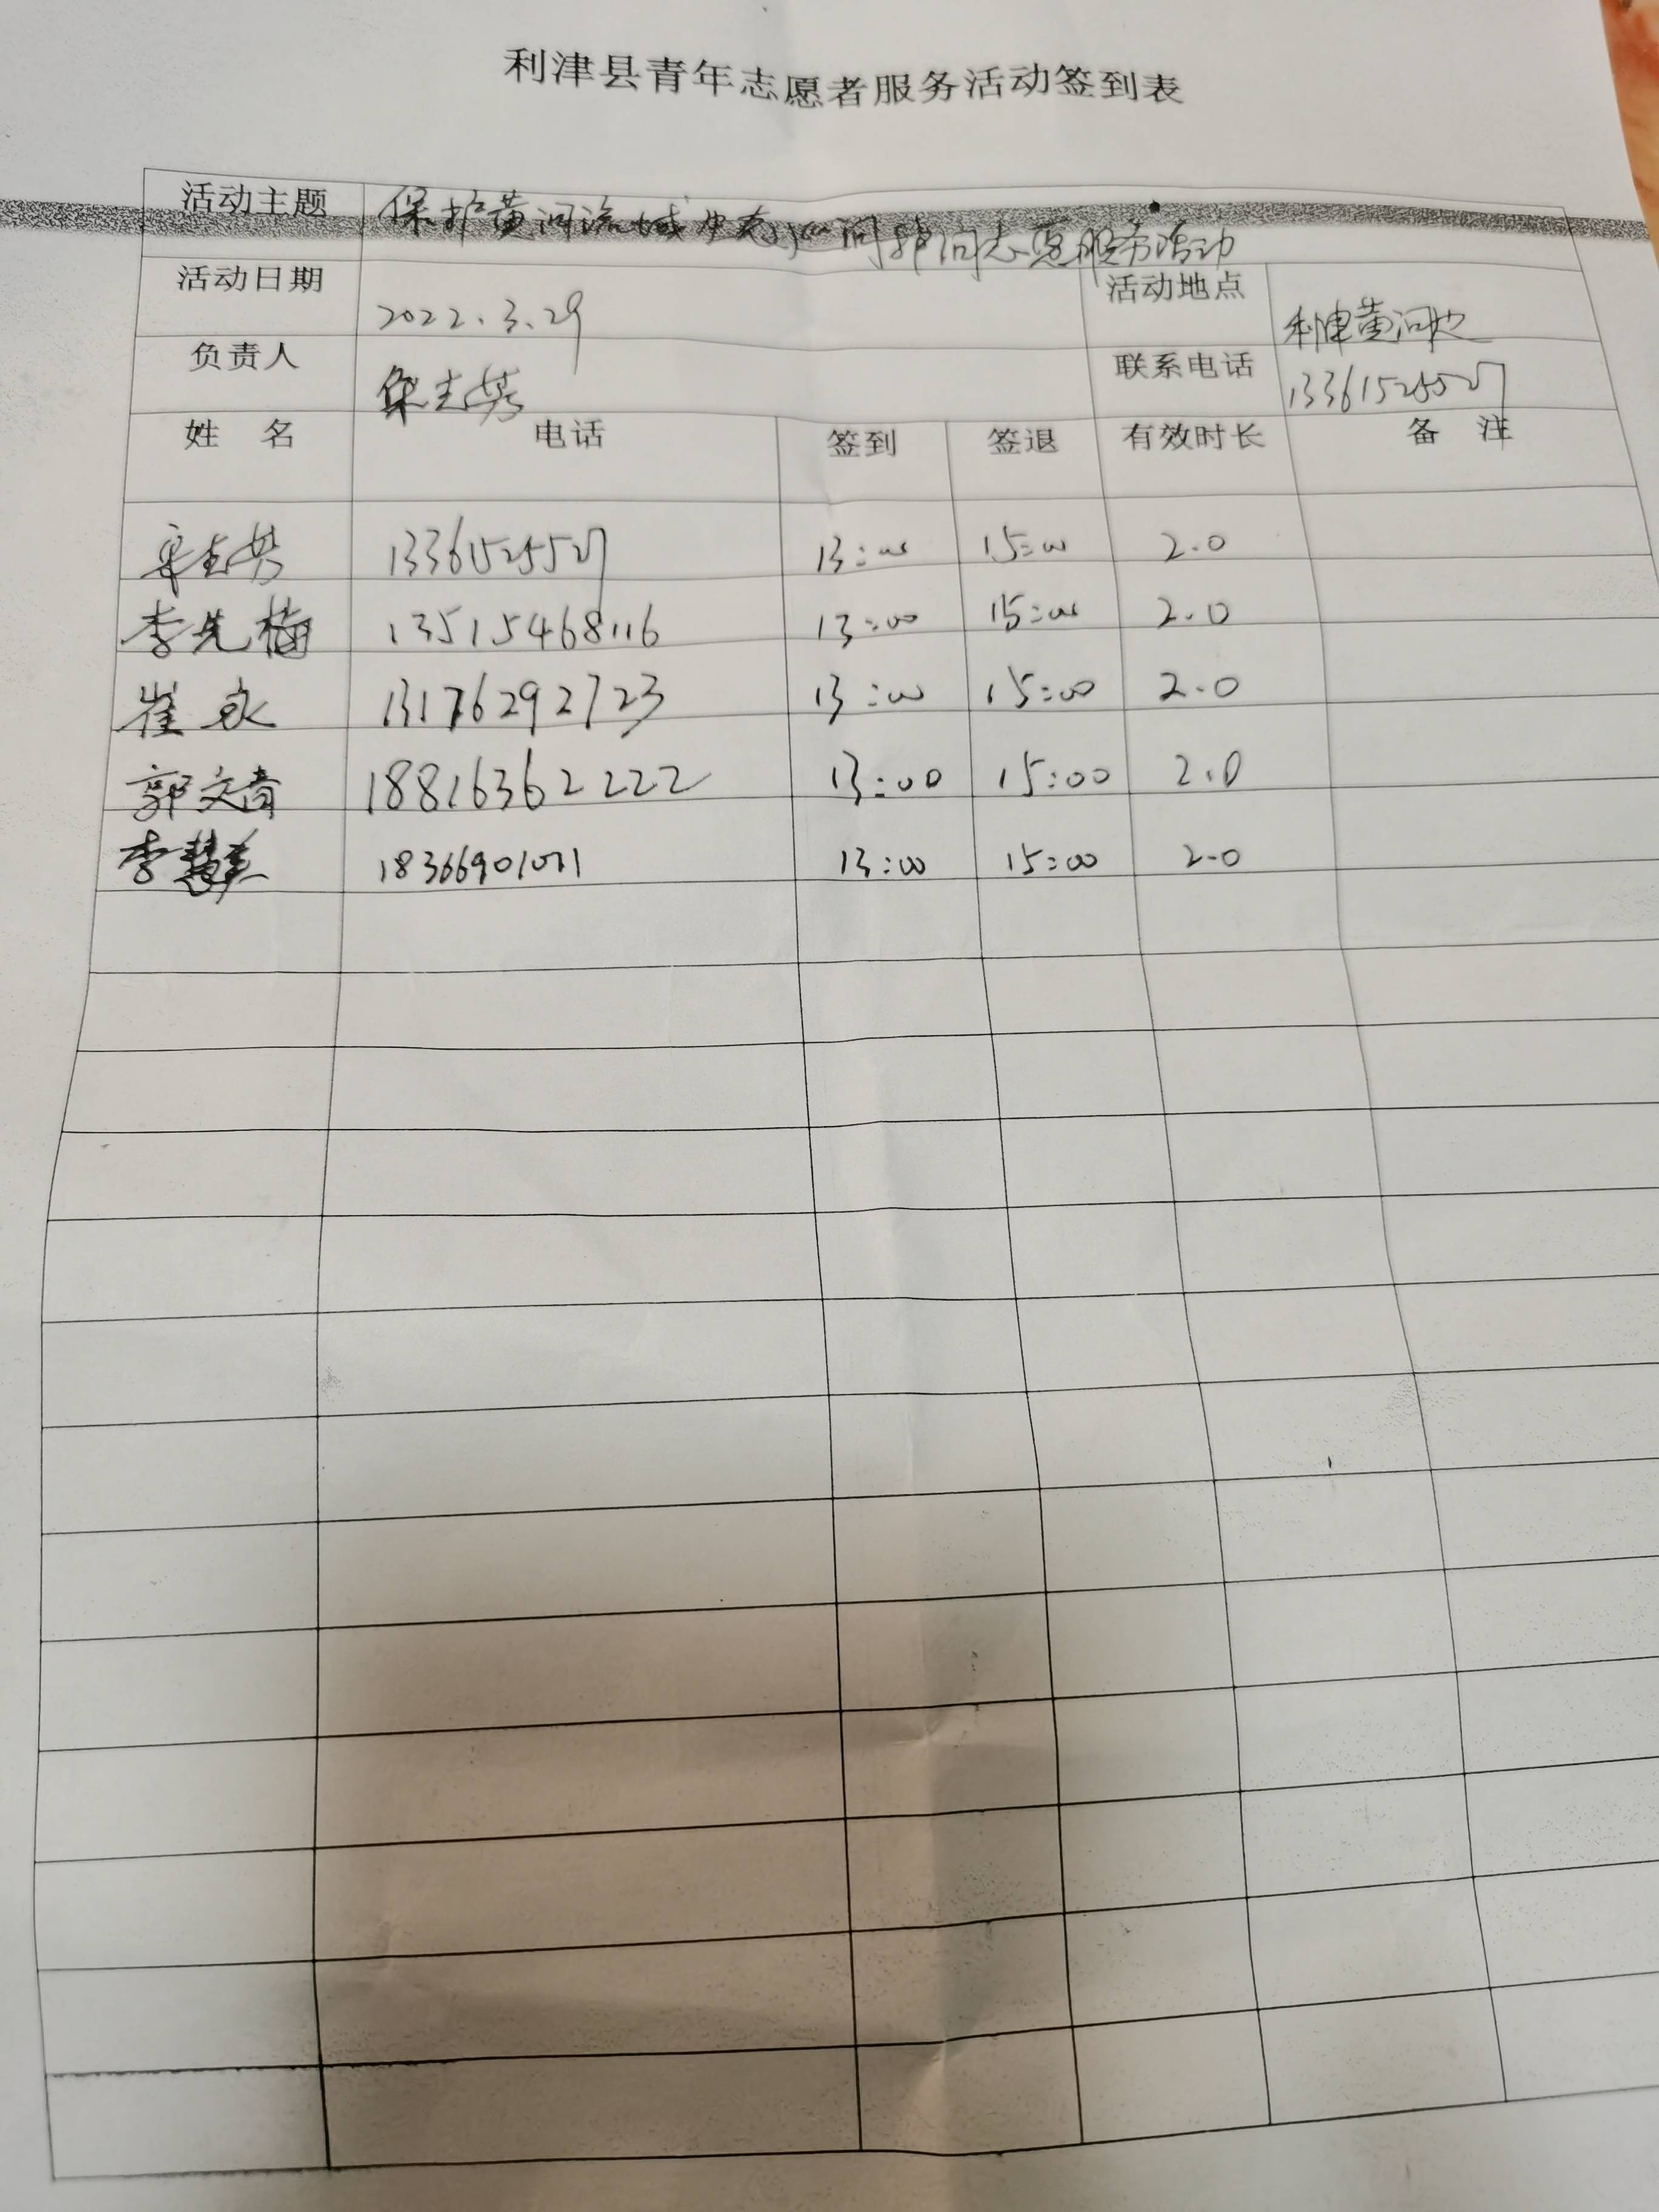 利津县青年志愿者服务活动签到表
活动主题 保护黄河流域
志愿服务活动
活动日期 2022.3.29 活动地点 利津黄河
负责人 联系电话
姓 名 电话 签到 签退 有效时长 备 注
13:00 15:00 2.0
李先梅 13515468116 13:00 15:00 2.0
崔永 13176292723 13:00 15:00 2.0
郭文青 18816362222 13:00 15:00 2.0
李慧 18366901071 13:00 15:00 2.0